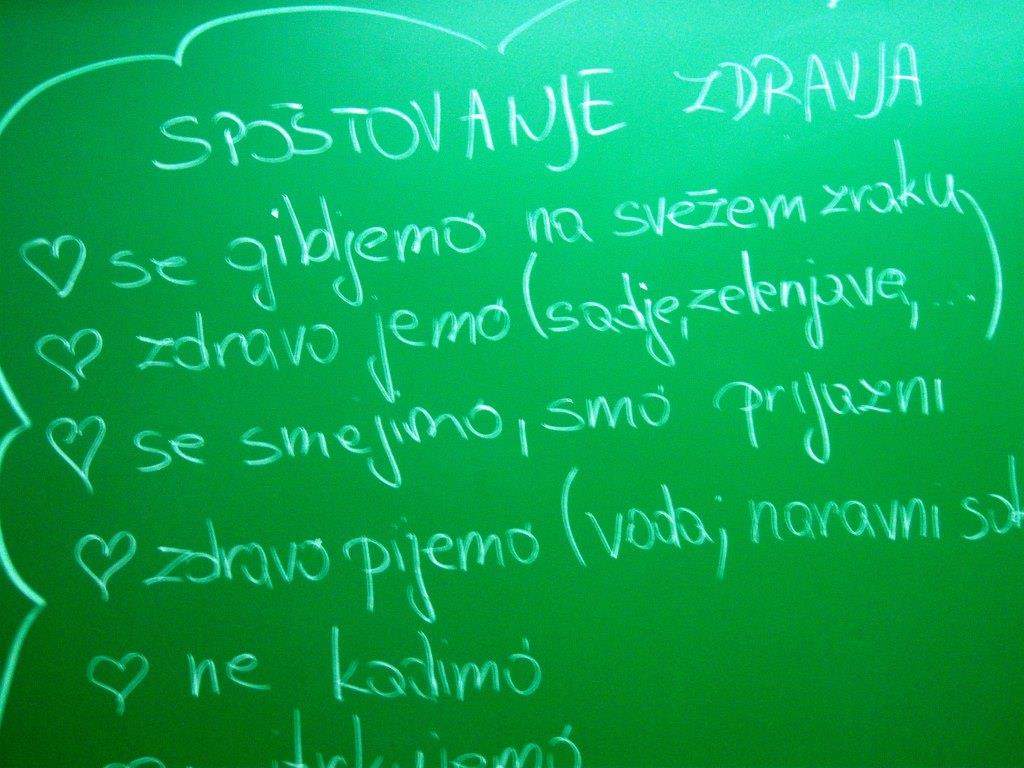 SPOŠTOVANJE ZDRAVJA
♡ se gibljemo na svežem zraku,
♡ zdravo jemo (sadje, zelenjave, ...)
♡ se smejimo, smo prijazni
♡ zdravo pijemo (voda, naravni sok
♡ ne kadimo